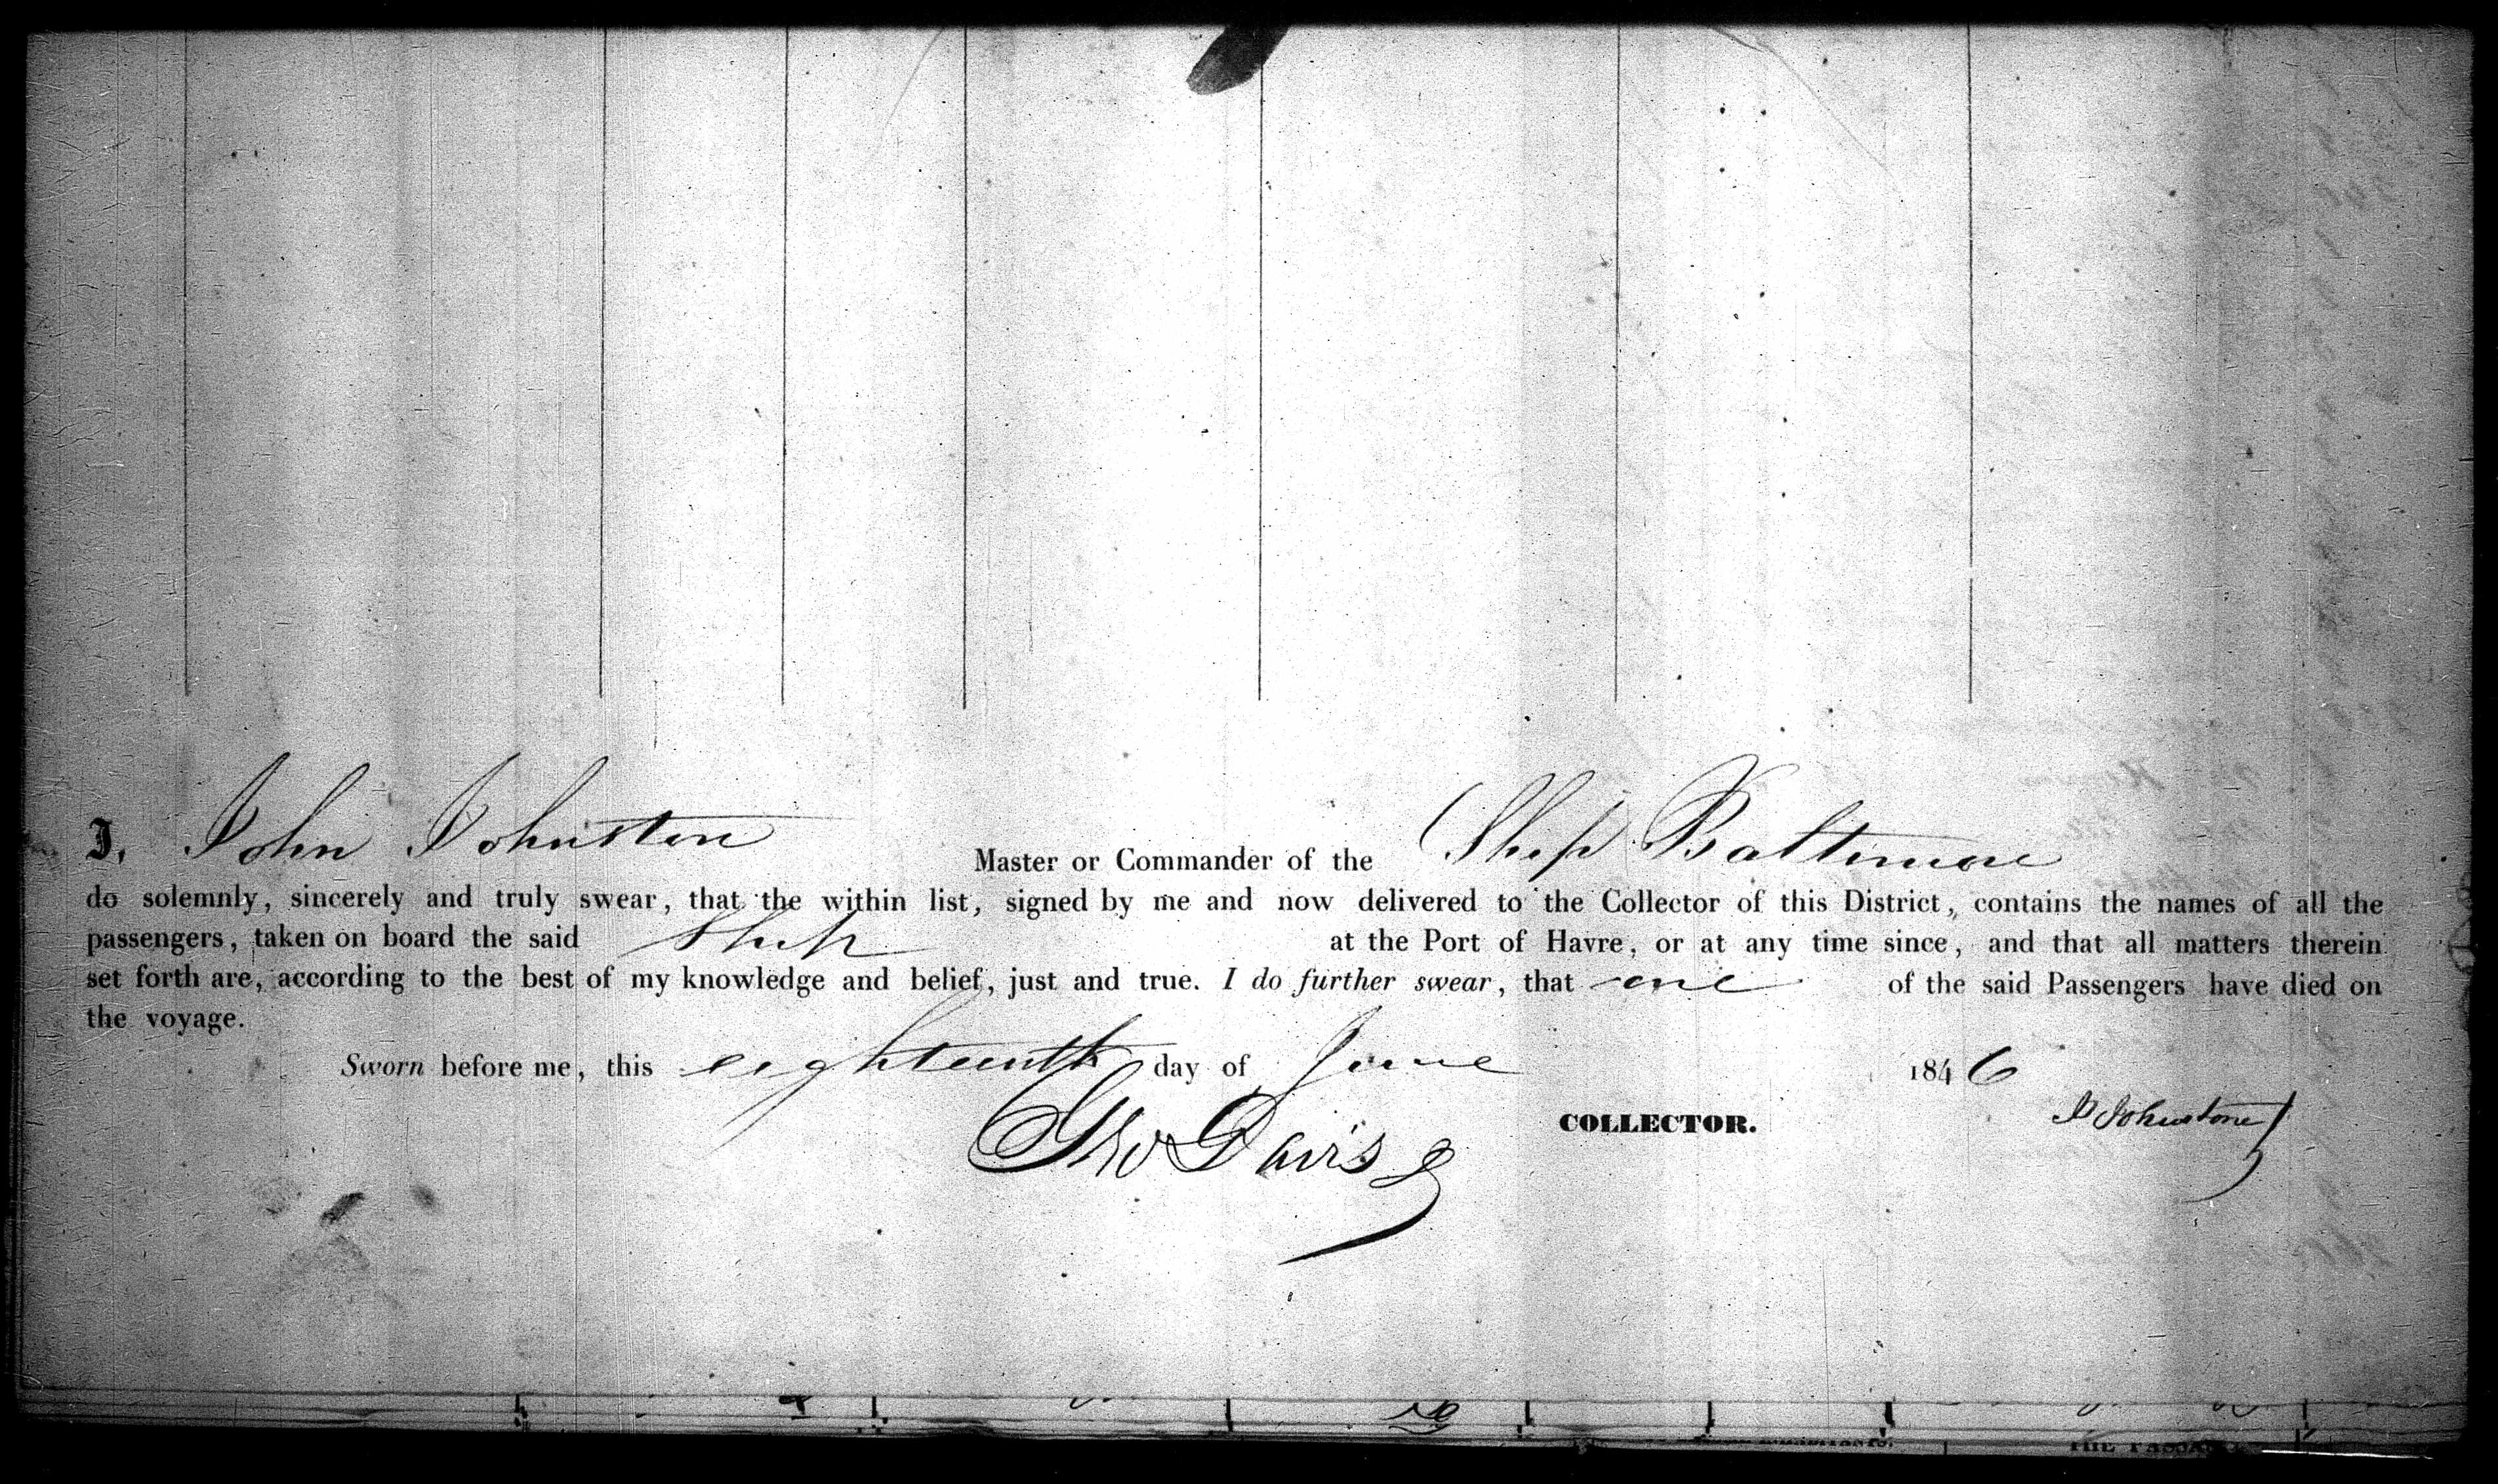 I, John Johnston Master or Commander of the Ship Baltimore
do solemnly, sincerely and truly swear, that the within list, signed by me and now delivered to the Collector of this District, contains the names of all the
passengers, taken on board the said Ship at the Port of Havre, or at any time since, and that all matters therein
set forth are, according to the best of my knowledge and belief, just and true. I do further swear, that one of the said Passengers have died on
the voyage.
Sworn before me, this eighteenth day of June 1846
Geo Davis COLLECTOR. J Johnstone